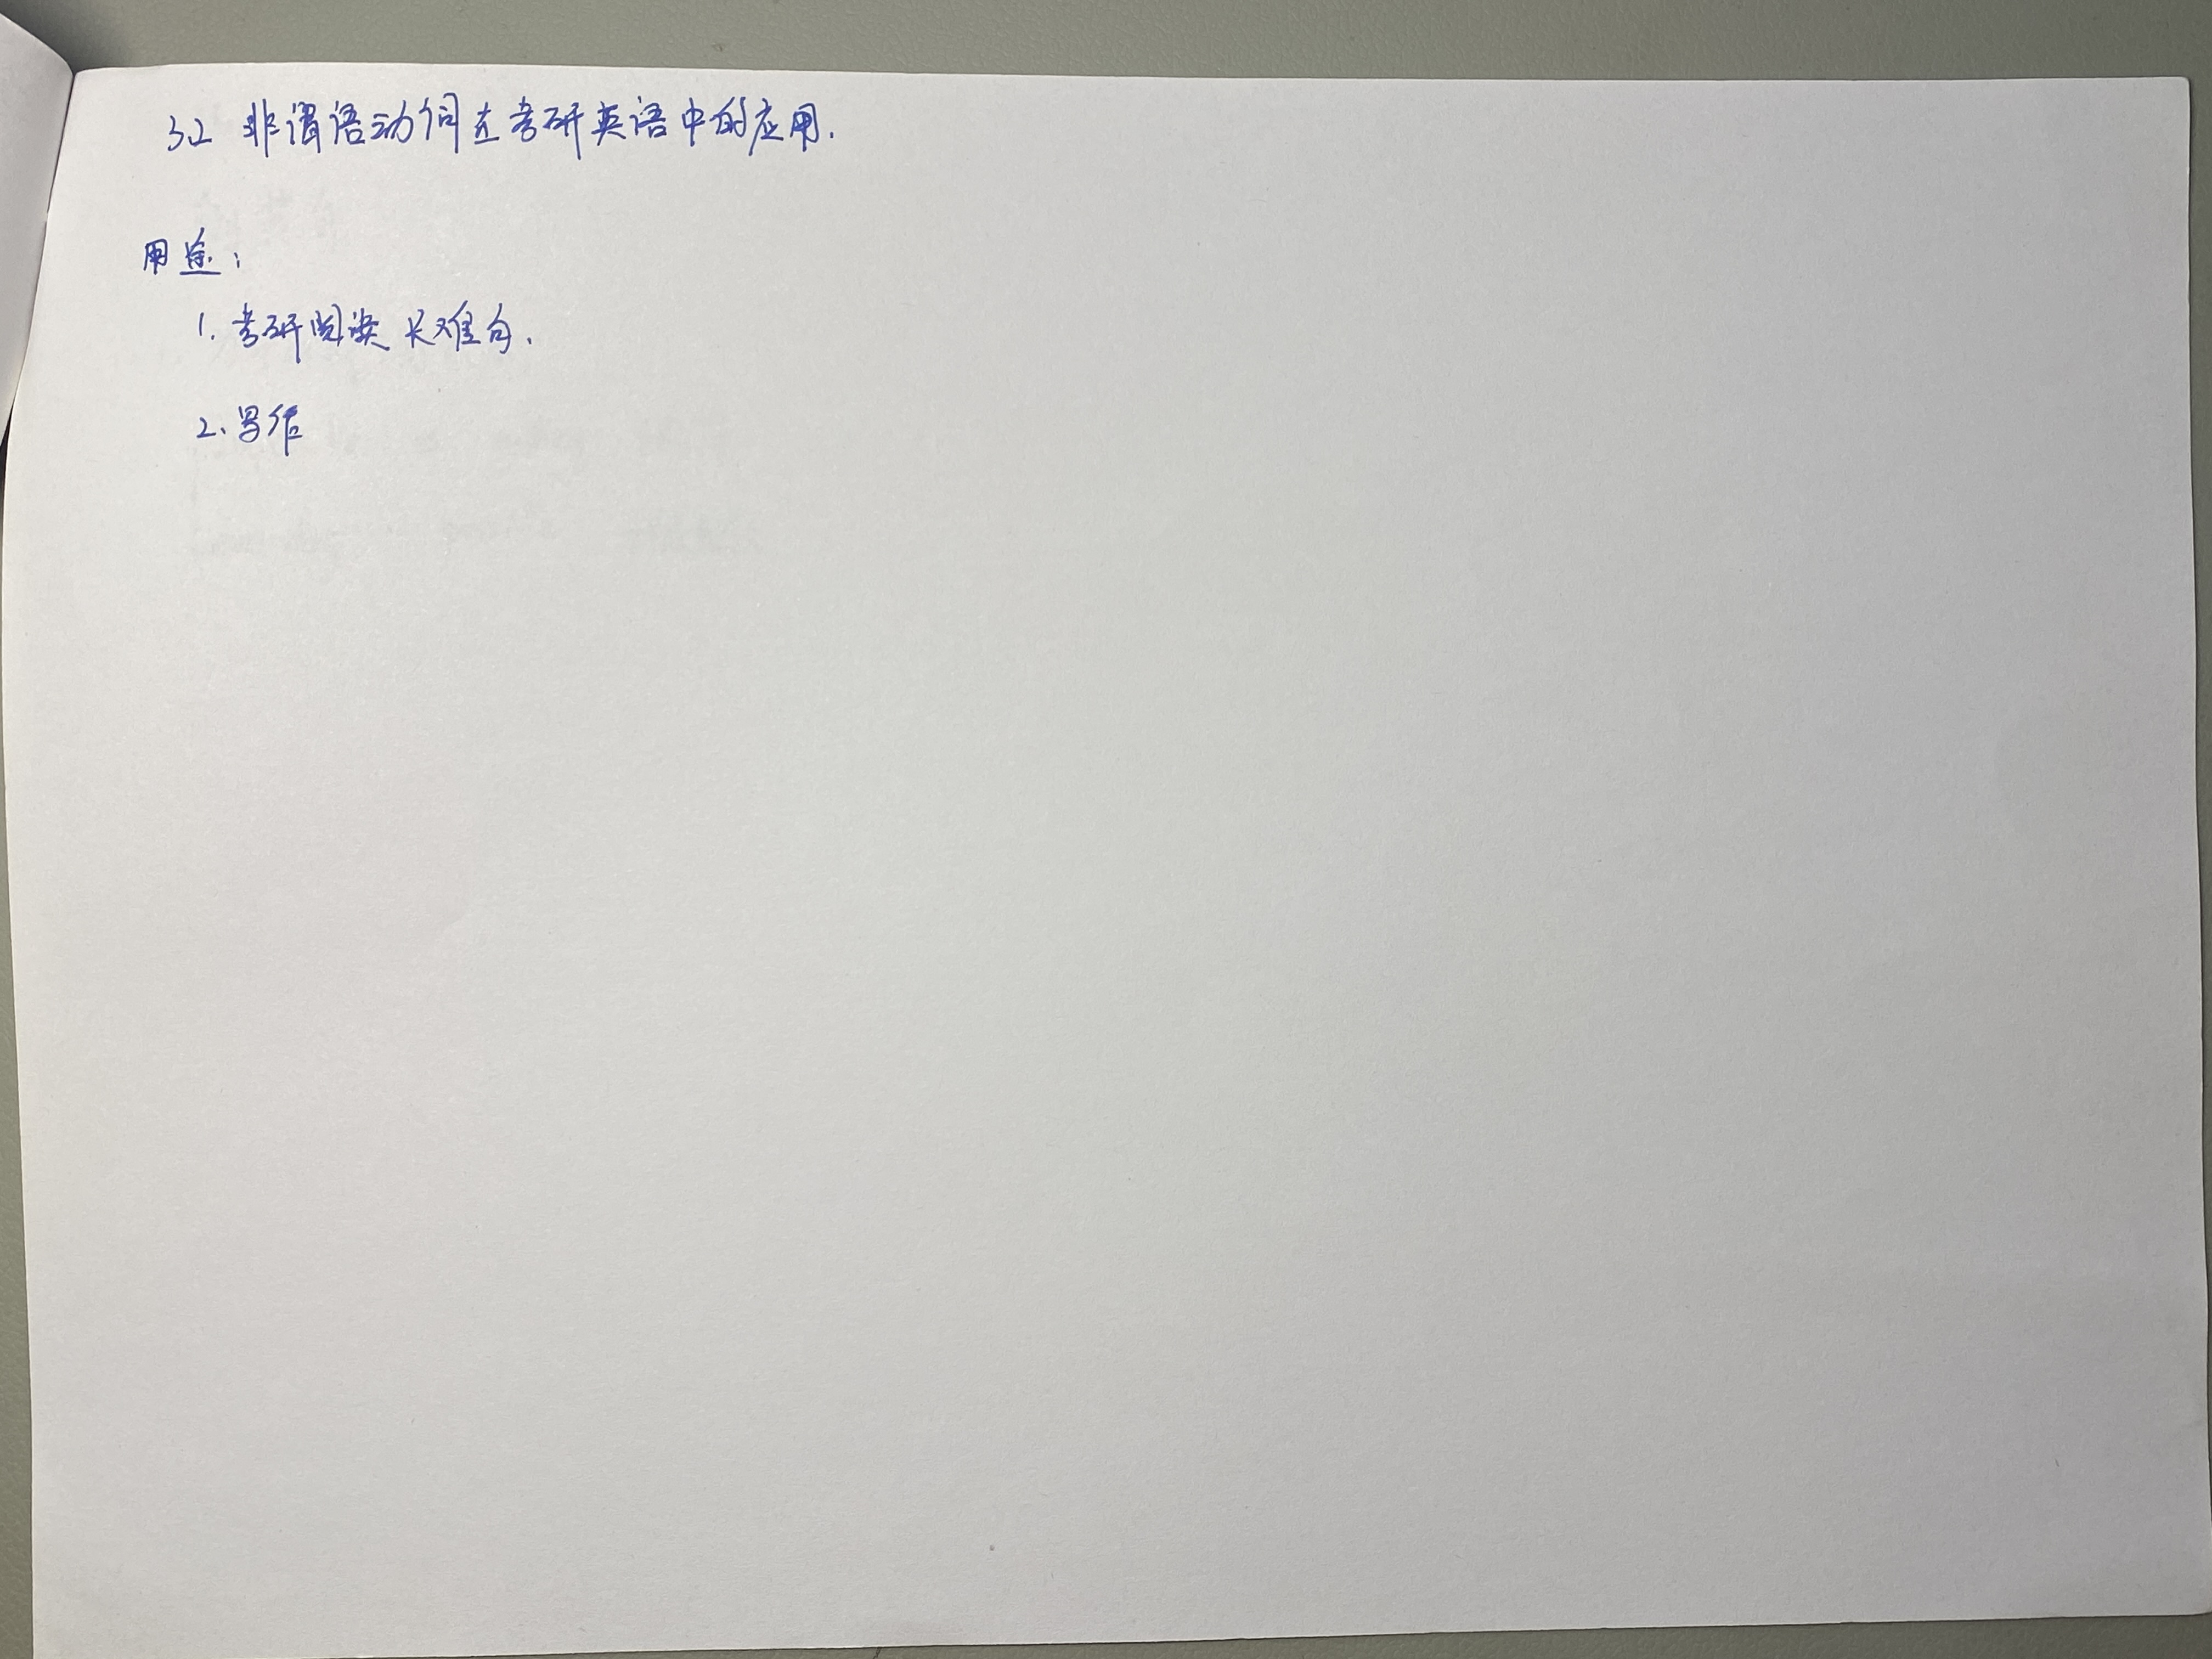 3.2 非谓语动词在考研英语中的应用.
用途:
1. 考研阅读 长难句.
2. 写作